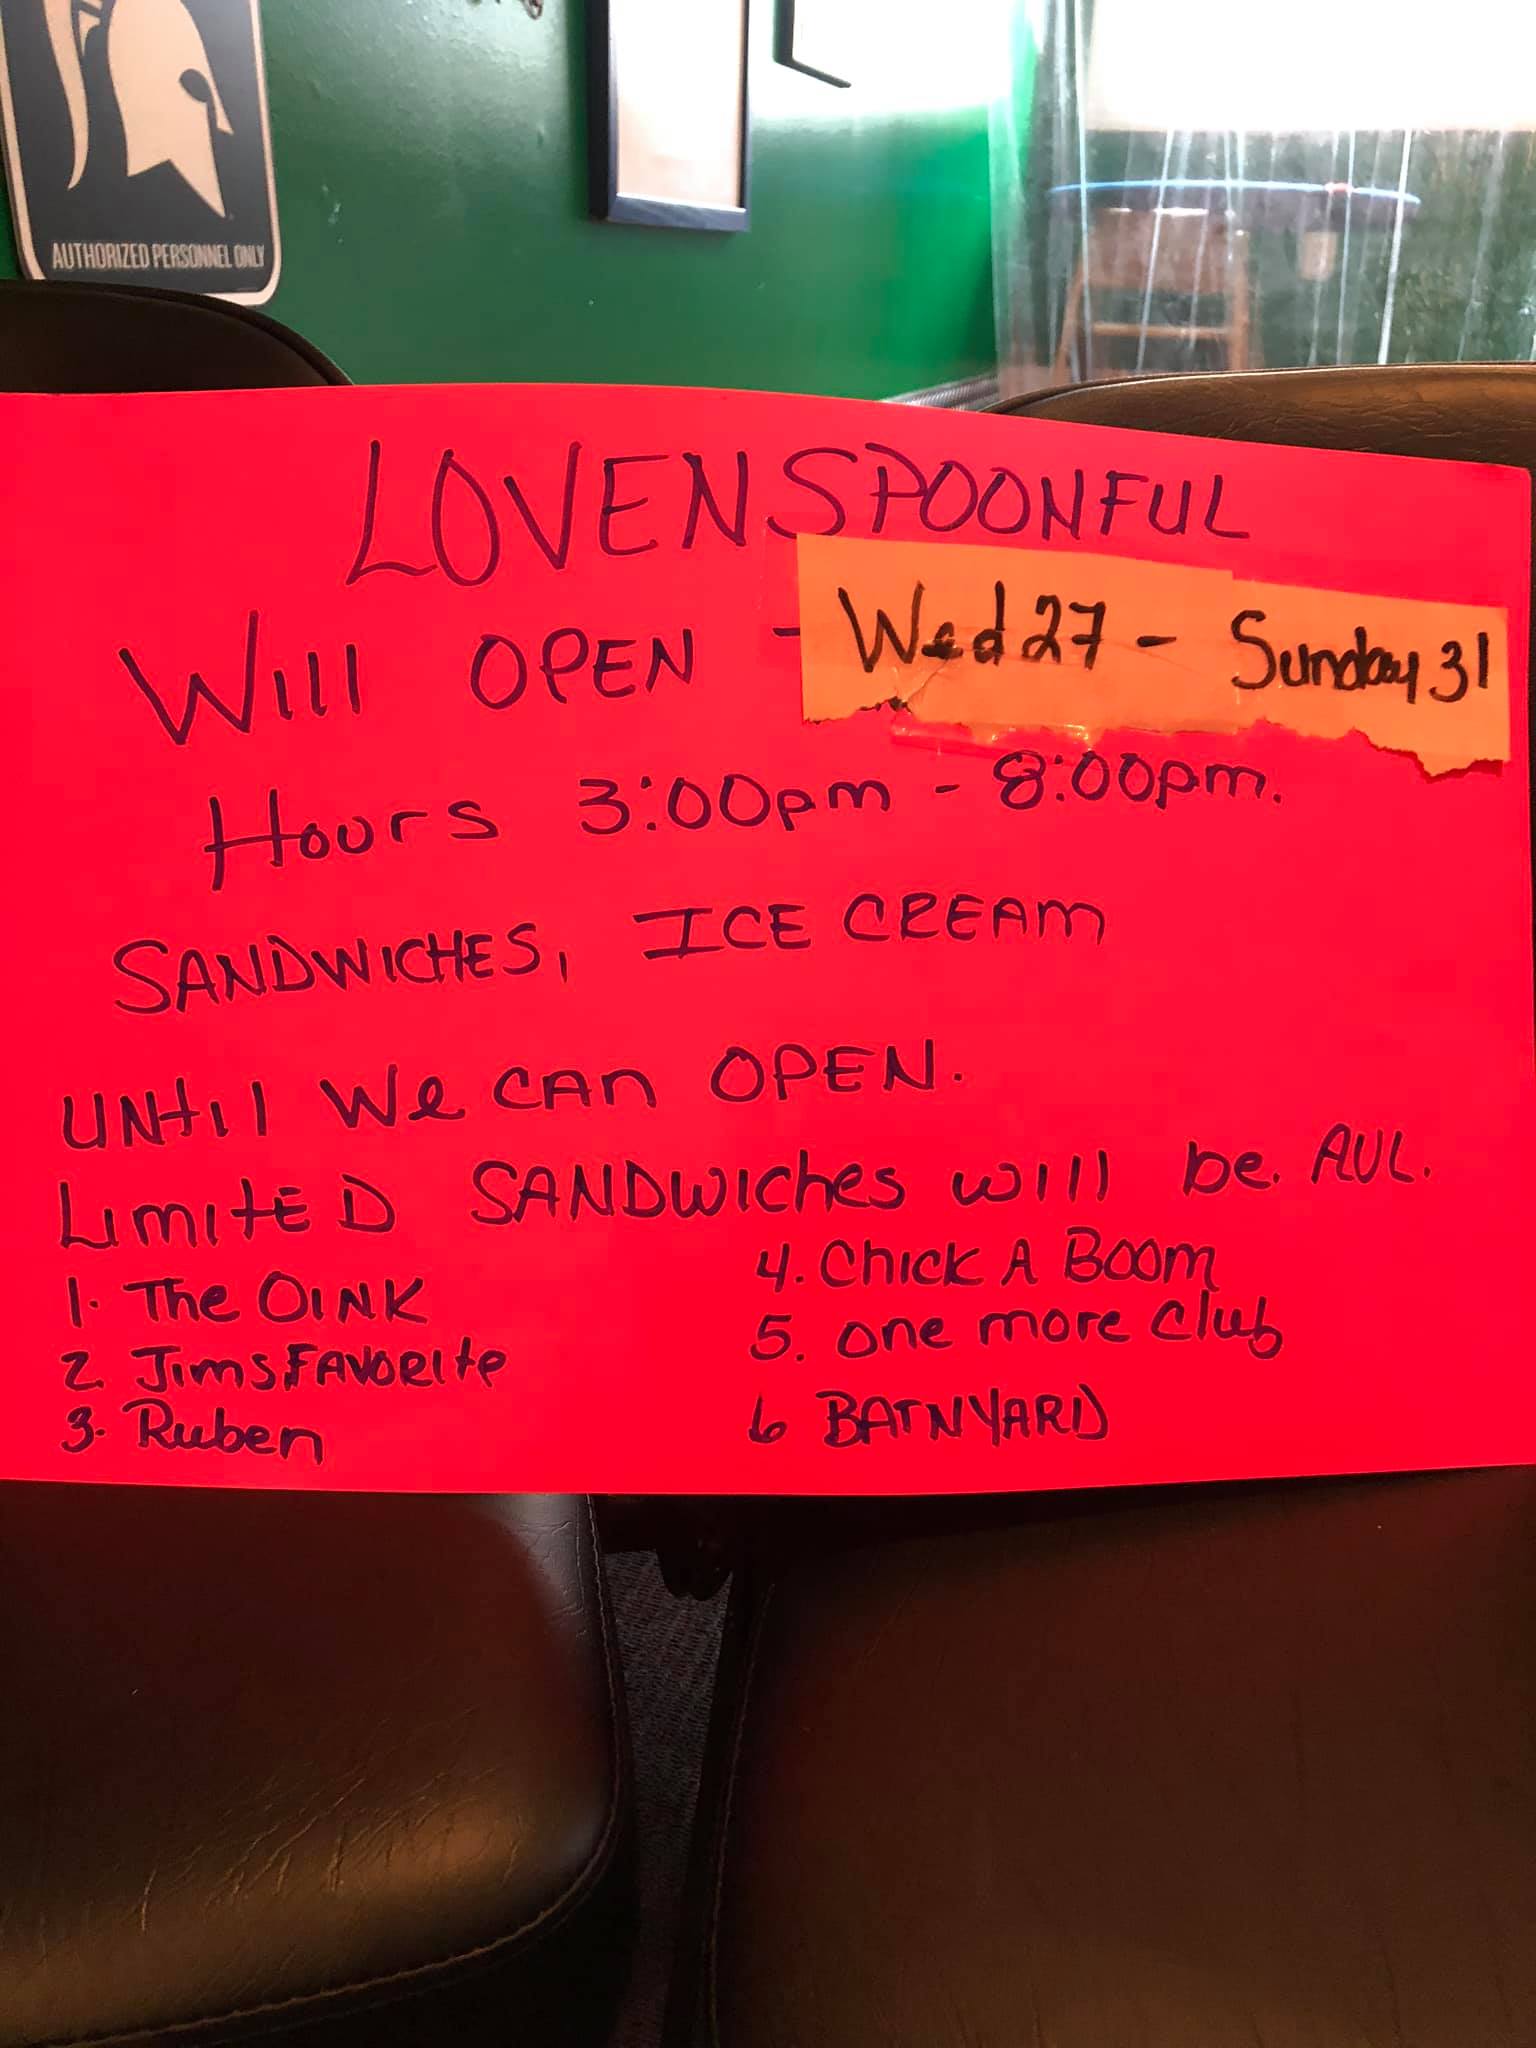 AUTHORIZED PERSONNEL ONLY
LOVEN SPOONFUL
Will OPEN - Wed 27 - Sunday 31
Hours 3:00pm - 8:00pm.
SANDWICHES, ICE CREAM
UNtil We CAN OPEN.
LIMItED SANDWIches will be. AVL.
1. The OINK
2. Jims FAVORIte
3. Ruben
4. Chick A Boom
5. one more club
6 BATNYARD